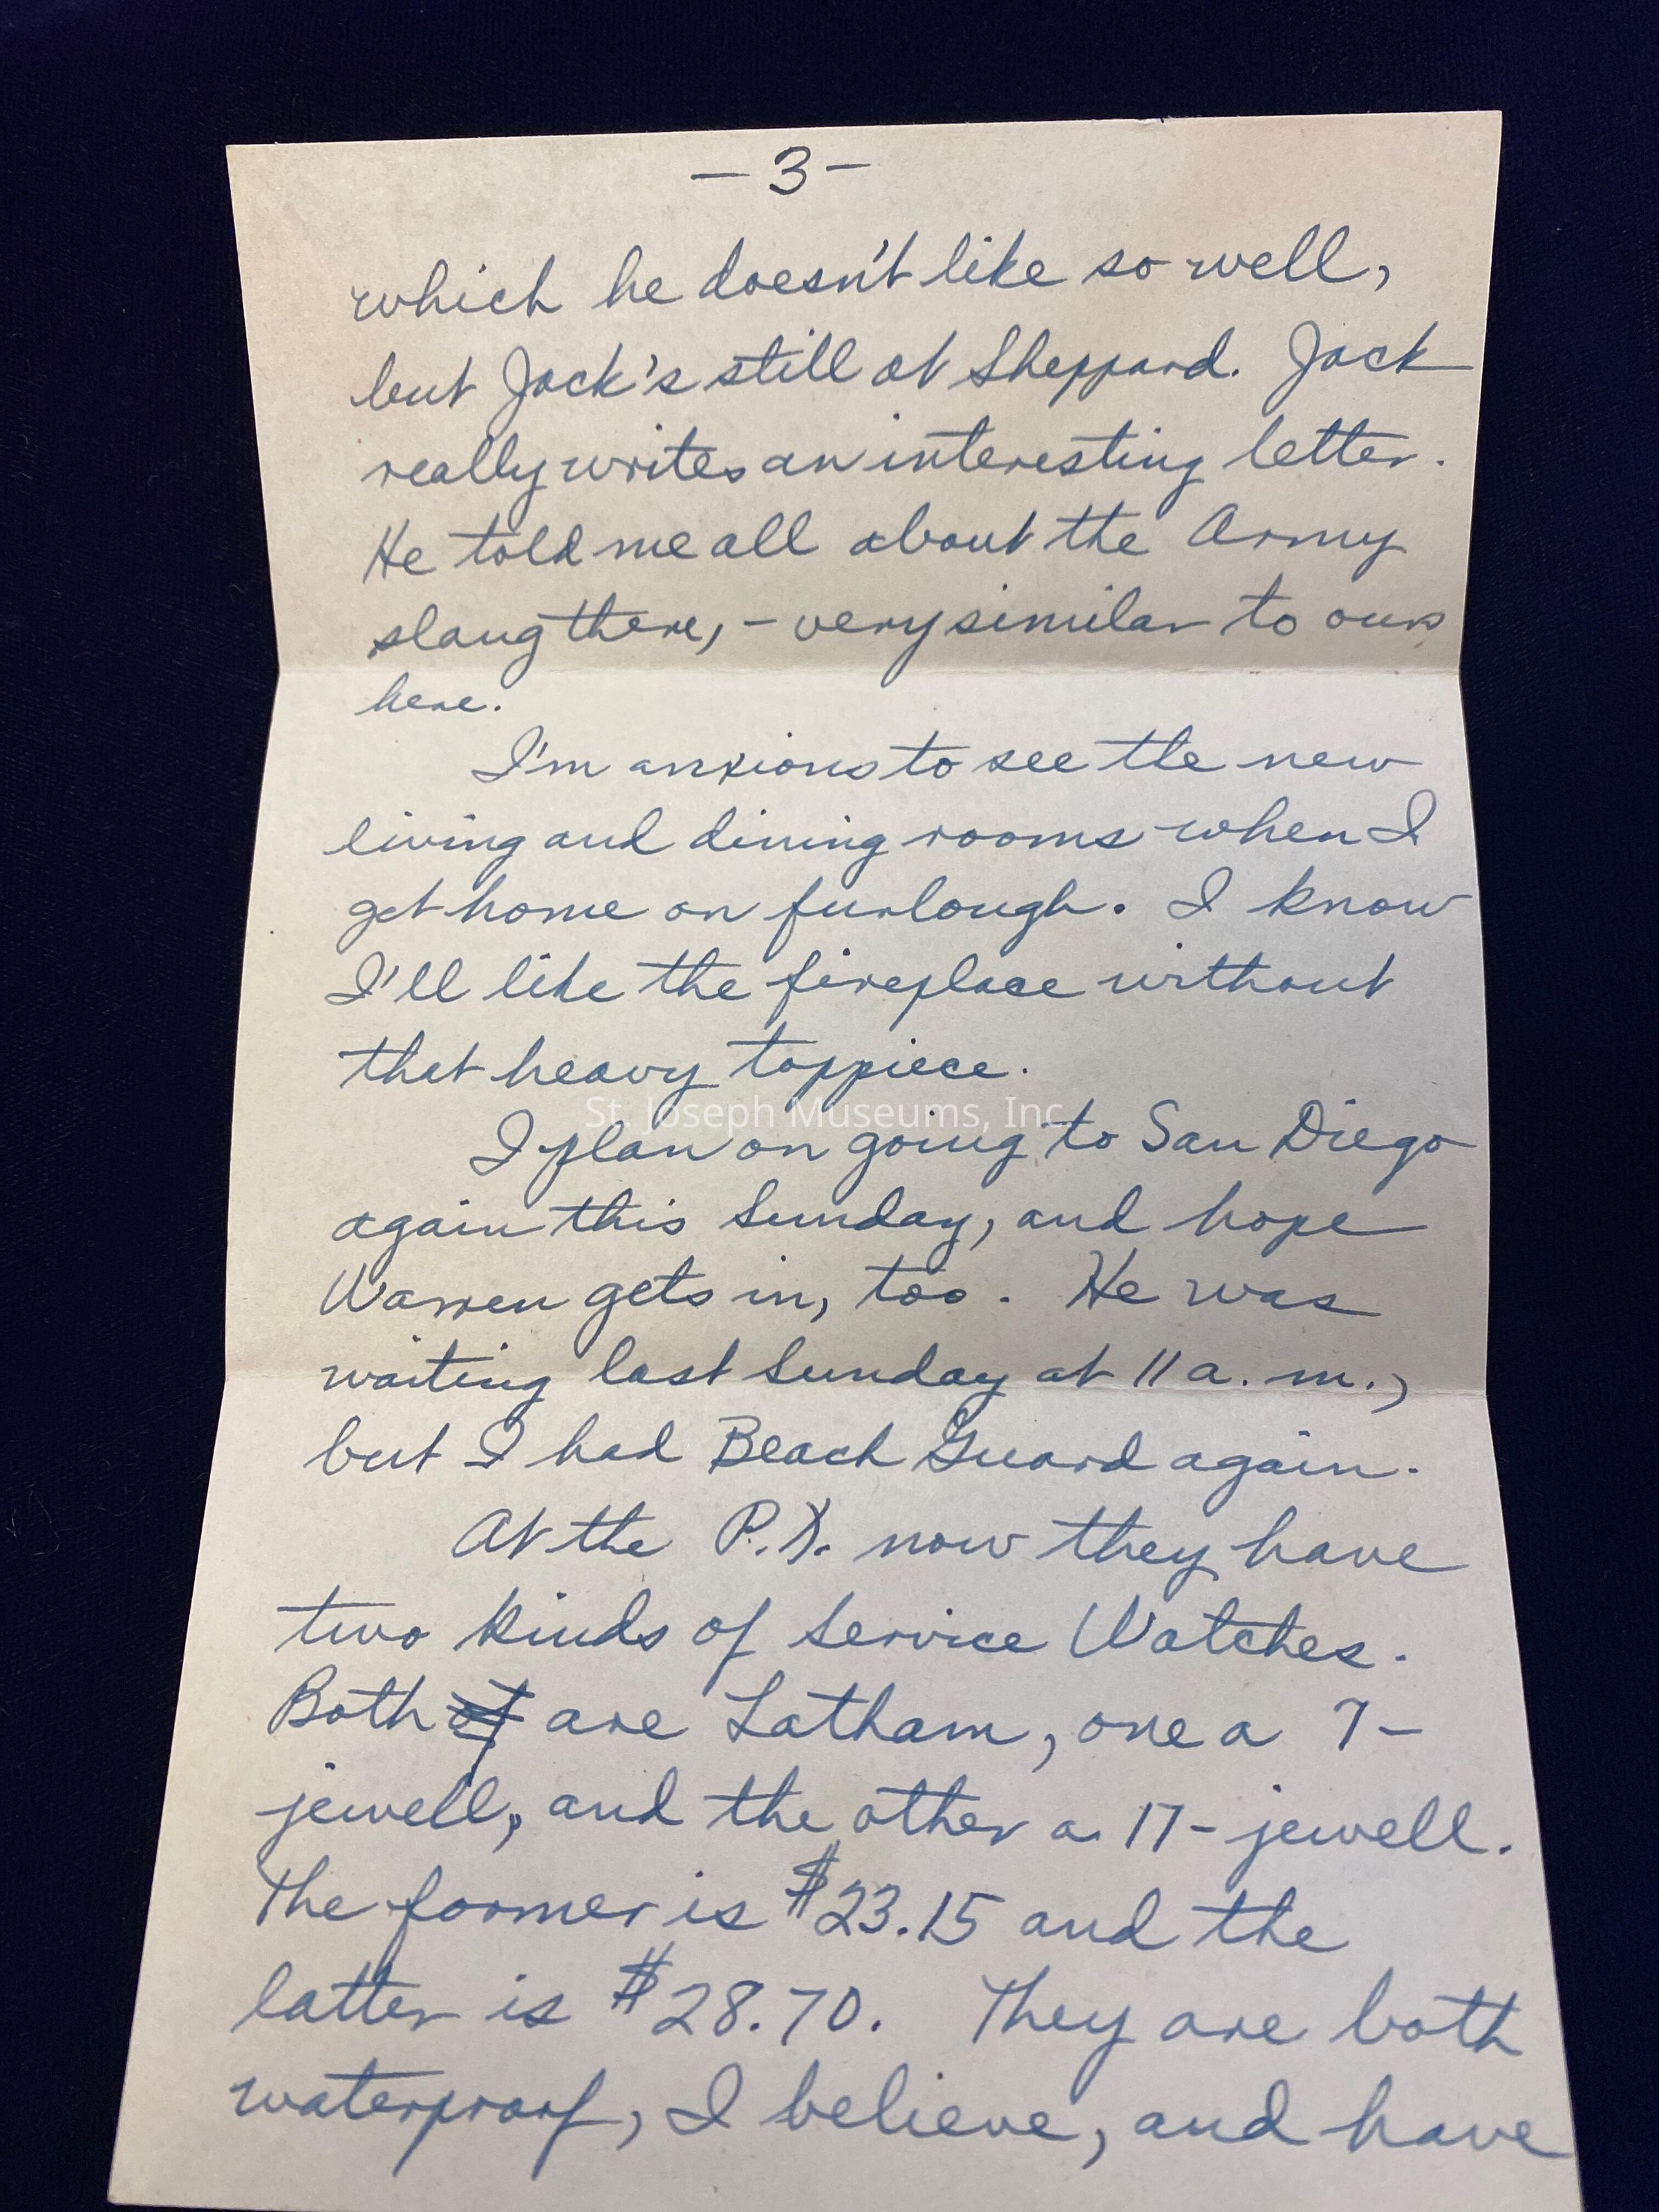 - 3 -
which he doesn't like so well,
but Jack's still at Sheppard. Jack
really writes an interesting letter.
He told me all about the Army
slang there, - very similar to ours
here.
I'm anxious to see the new
living and dining rooms when I
get home on furlough. I know
I'll like the fireplace without
that heavy toppiece.
St. Joseph Museums, Inc.
I plan on going to San Diego
again this Sunday, and hope
Warren gets in, too. He was
waiting last Sunday at 11 a. m.,
but I had Beach Guard again.
At the P.X. now they have
two kinds of Service Watches.
Both of are Latham, one a 7-
jewell, and the other a 17-jewell.
The former is $23.15 and the
latter is $28.70. They are both
waterproof, I believe, and have